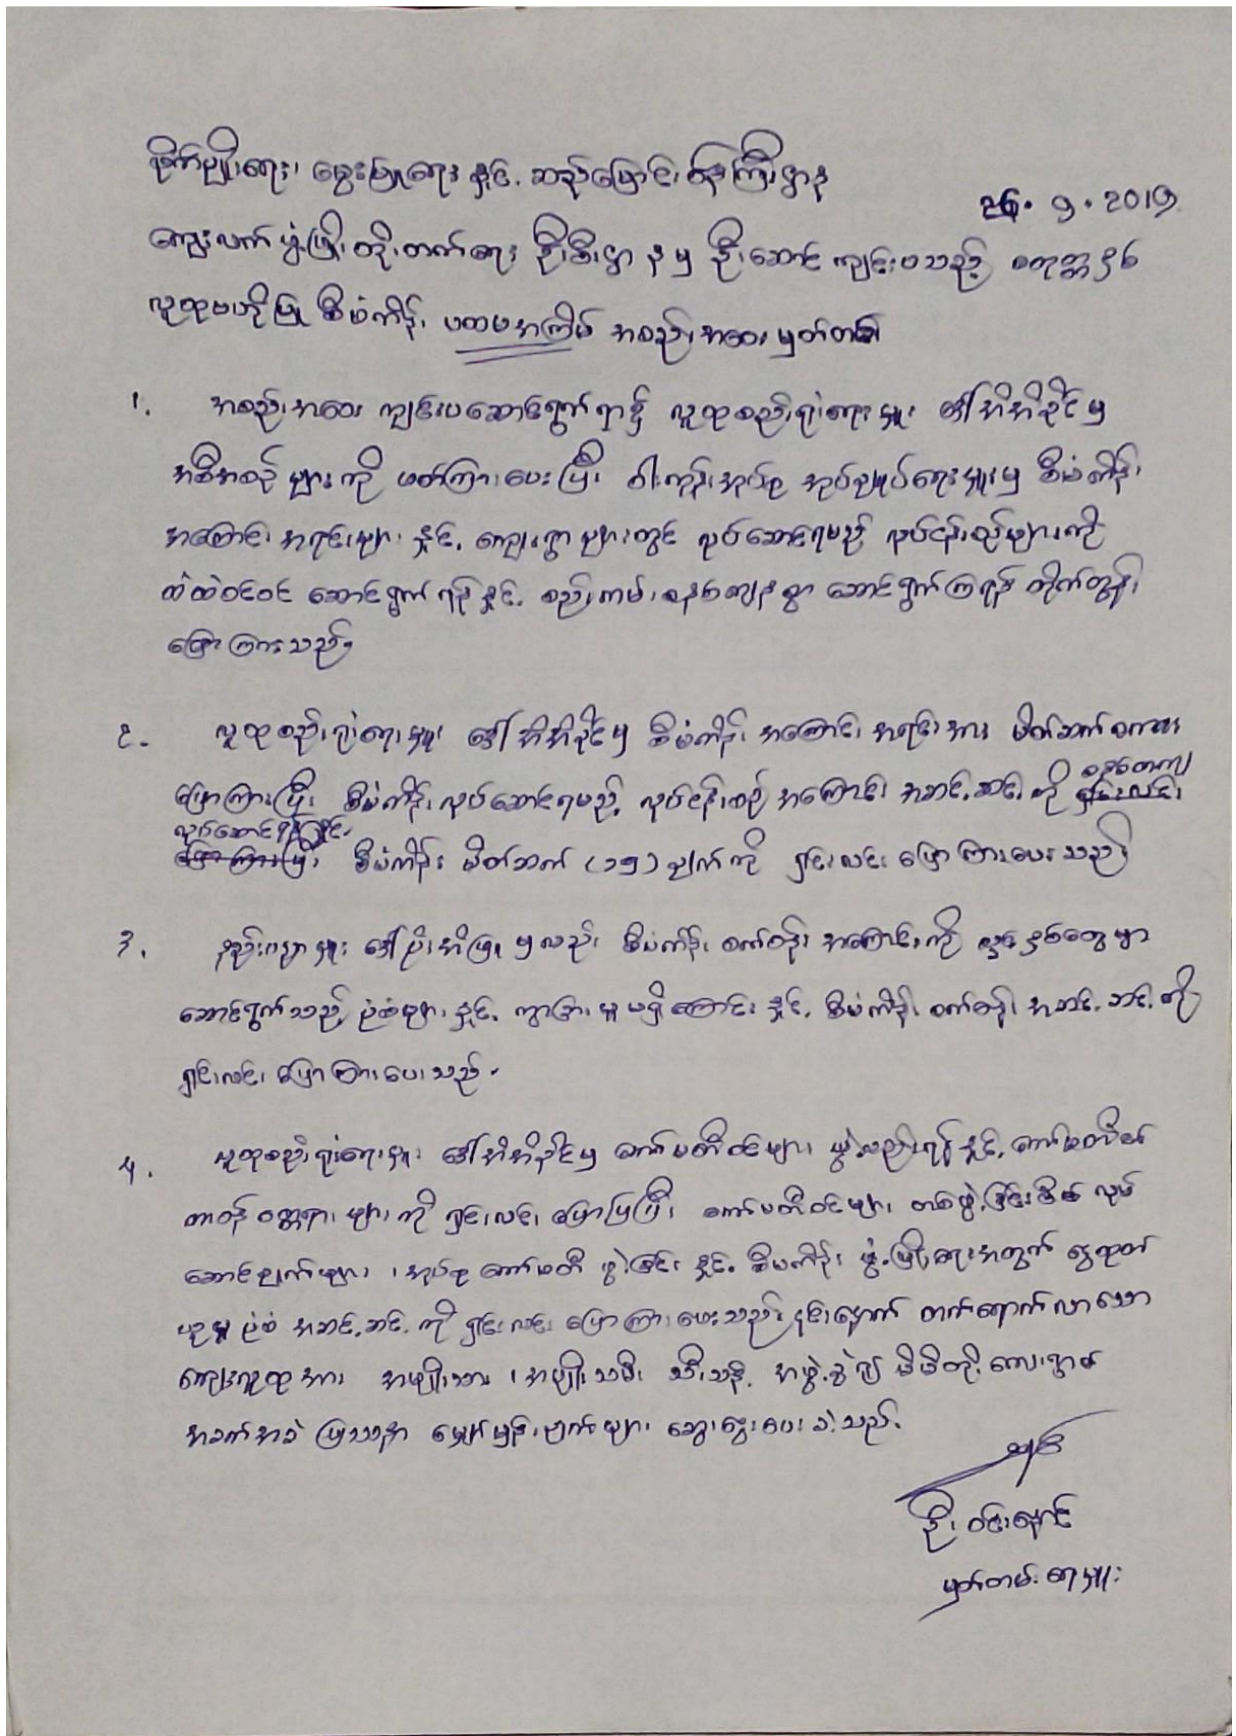 စိုက်ပျိုးရေး၊ မွေးမြူရေး နှင့် ဆည်မြောင်း ဝန်ကြီးဌာန
၂၆. ၇. ၂၀၁၇
ကျေးလက် ဖွံ့ဖြိုး တိုးတက်ရေး ဦးစီးဌာနမှ ဦးဆောင် ကျင်းပသည့် စတုတ္ထနှစ်
လူထုဗဟိုပြု စီမံကိန်း ပထမအကြိမ် အစည်းအဝေး မှတ်တမ်း
၁. အစည်းအဝေး ကျင်းပဆောင်ရွက်ရာ၌ လူထုစည်းရုံးရေးမှူး ဒေါ်အိအိခိုင်မှ
အစီအစဉ်များကို ဖတ်ကြားပေးပြီး ဝါးကုန်းအုပ်စု အုပ်ချုပ်ရေးမှူးမှ စီမံကိန်း
အကြောင်း အရင်းများ နှင့် ကျေးရွာများတွင် လုပ်ဆောင်ရမည့် လုပ်ငန်းစဉ်များကို
ထဲထဲဝင်ဝင် ဆောင်ရွက်ရန် နှင့် စည်းကမ်း စနစ်တကျ စွာ ဆောင်ရွက်ကြရန် တိုက်တွန်း
ပြောကြားသည်။
၂. လူထုစည်းရုံးရေးမှူး ဒေါ်အိအိခိုင်မှ စီမံကိန်း အကြောင်း အရင်းအား မိတ်ဆက်စကား
စနစ်တကျ
ပြောကြားပြီး စီမံကိန်း လုပ်ဆောင်ရမည့် လုပ်ငန်းစဉ် အကြောင်း အဆင့်ဆင့် ကို ရှင်းလင်း
လုပ်ဆောင်ရန်နှင့်
ပြောကြားပြီး စီမံကိန်း မိတ်ဆက် (၁၅) ချက်ကို ရှင်းလင်း ပြောကြားပေးသည်။
၃. နည်းပညာမှူး ဒေါ်ဦးအိဖြူမှလည်း စီမံကိန်း စက်ဝန်း အကြောင်းကို ယခင်နှစ်တွေမှာ
ဆောင်ရွက်သည့် ပုံစံများ နှင့် ကွာခြားမှု မရှိကြောင်း နှင့် စီမံကိန်း စက်ဝန်း အဆင့်ဆင့်ကို
ရှင်းလင်း ပြောကြားပေးသည်။
၄. လူထုစည်းရုံးရေးမှူး ဒေါ်အိအိခိုင်မှ ကော်မတီဝင်များ ဖွဲ့စည်းရန် နှင့် ကော်မတီ၏
တာဝန် ဝတ္တရားများကို ရှင်းလင်း ပြောပြပြီး ကော်မတီဝင်များ တစ်ဖွဲ့ခြင်းစီ၏ လုပ်
ဆောင်ချက်များ ၊ အုပ်စု ကော်မတီ ဖွဲ့ခြင်း နှင့် စီမံကိန်း ဖွံ့ဖြိုးရေးအတွက် ငွေထုတ်
ယူမှု ပုံစံ အဆင့်ဆင့် ကို ရှင်းလင်း ပြောကြားပေးသည်။ ၎င်းနောက် တက်ရောက်လာသော
ကျေးလူထုအား အမျိုးသား ၊ အမျိုးသမီး သီးသန့် အဖွဲ့ခွဲ၍ မိမိတို့ ကျေးရွာ၏
အခက်အခဲ ပြဿနာ မျှော်မှန်းချက်များ ဆွေးနွေးပေးခဲ့သည်။
ဦးဝင်းနောင်
မှတ်တမ်းရေးမှူး